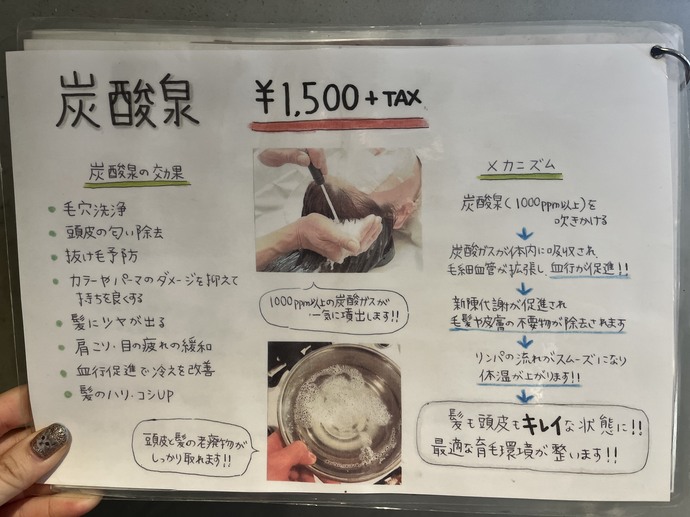 炭酸泉
¥1,500+TAX
炭酸泉の効果
毛穴洗浄
頭皮の匂い除去
抜け毛予防
カラーやパーマのダメージを抑えて
持ちを良くする
髪にツヤが出る
肩こり・目の疲れの緩和
血行促進で冷えを改善
髪のハリ・コシUP
頭皮と髪の老廃物が
しっかり取れます!!
1000ppm以上の炭酸ガスが
一気に噴出します!!
メカニズム
炭酸泉(1000ppm以上)を
吹きかける
炭酸ガスが体内に吸収され、
毛細血管が拡張し、血行が促進!!
新陳代謝が促進され
毛髪や皮膚の不要物が除去されます
リンパの流れがスムーズになり
体温が上がります!!
髪も頭皮もキレイな状態に!!
最適な育毛環境が整います!!